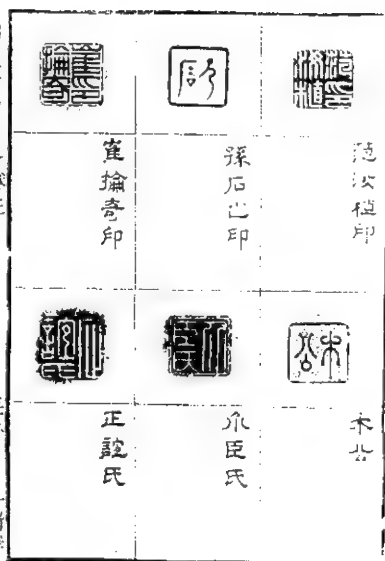 范汝植印
孫石㠯印
崔掄奇印
木公
介臣氏
正誼氏